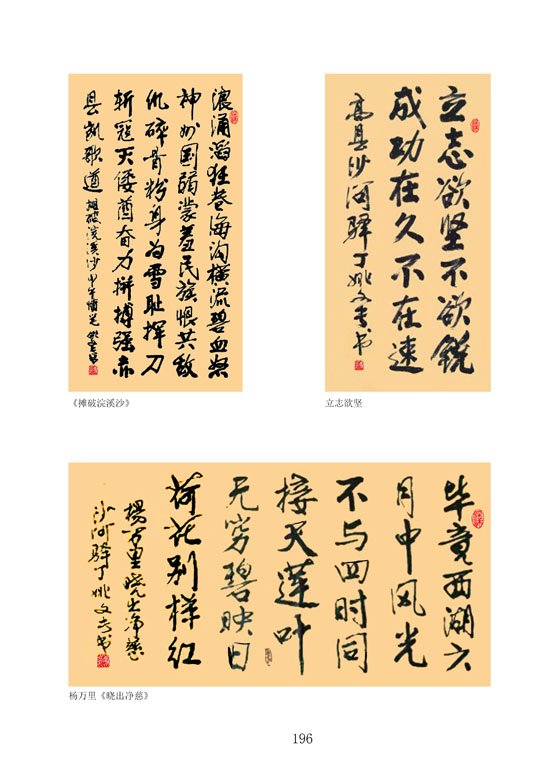 浪涌滔狂卷海沟横流碧血祭
神州国弱蒙羞民族恨共敌
仇碎骨粉身为雪耻挥刀
斩寇灭倭酋奋力拼搏强赤
县凯歌遒
摊破浣溪沙甲午
《摊破浣溪沙》
立志欲坚不欲锐
成功在久不在速
高县沙河驿丁姚文专书
立志欲坚
毕竟西湖六
月中风光
不与四时同
接天莲叶
无穷碧映日
荷花别样红
杨万里晓出净慈
沙河驿丁姚文专书
杨万里《晓出净慈》
196